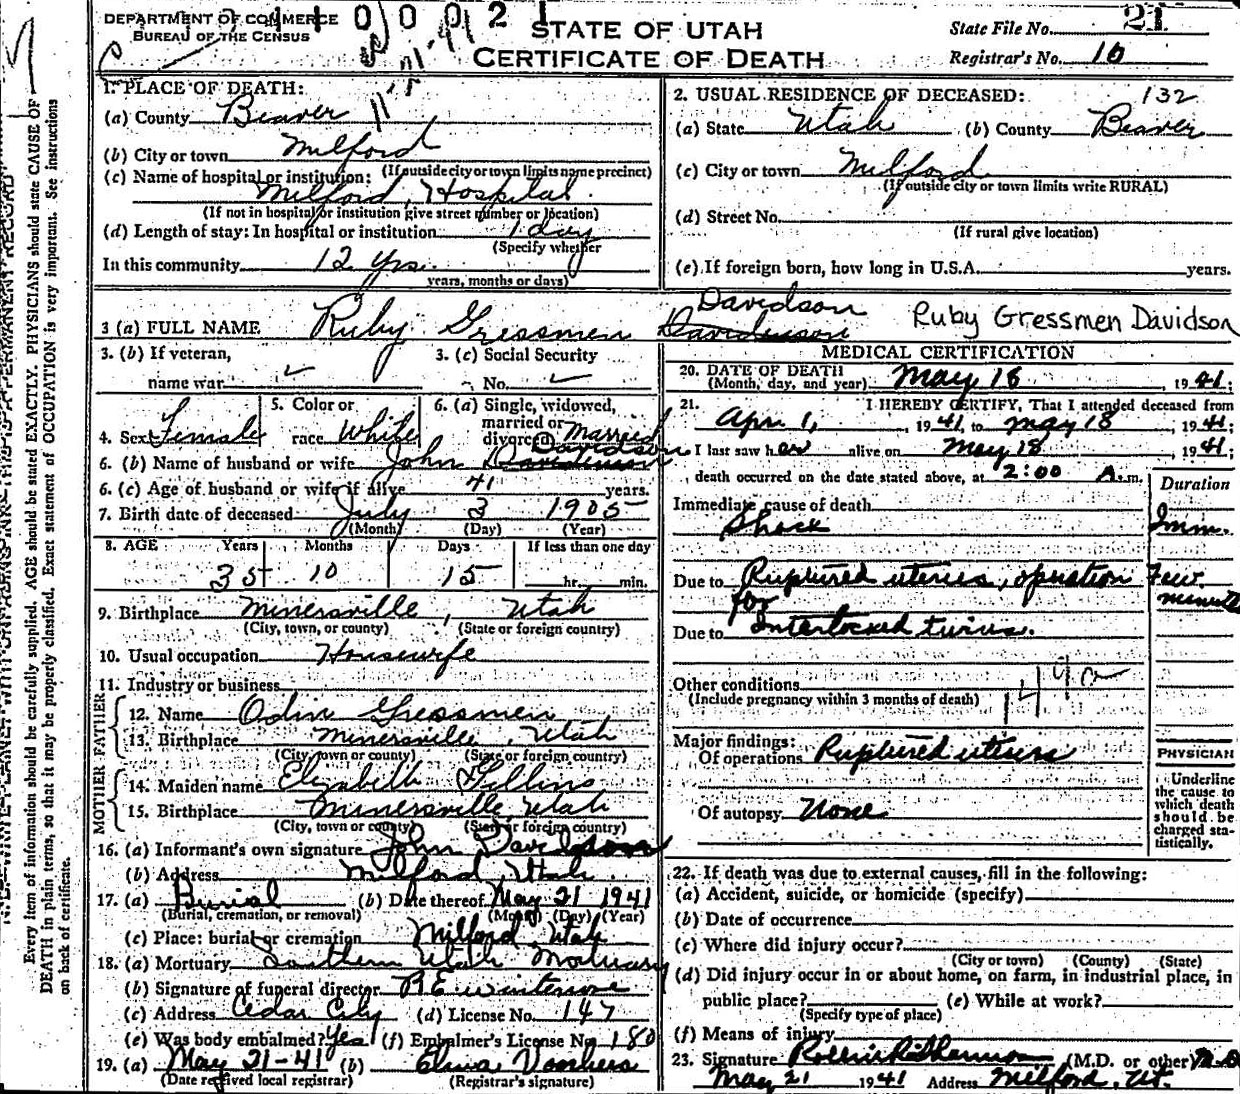 DEPARTMENT OF COMMERCE
BUREAU OF THE CENSUS
STATE OF UTAH
CERTIFICATE OF DEATH
State File No. 21
Registrar's No. 10
Every item of information should be carefully supplied. AGE should be stated EXACTLY. PHYSICIANS should state CAUSE OF
DEATH in plain terms, so that it may be properly classified. Exact statement of OCCUPATION is very important. See instructions
on back of certificate.
1. PLACE OF DEATH:
(a) County Beaver
(b) City or town Milford
(If outside city or town limits name precinct)
(c) Name of hospital or institution:
Milford, Hospital.
(If not in hospital or institution give street number or location)
(d) Length of stay: In hospital or institution 1 day
(Specify whether
In this community 12 yrs.
years, months or days)
2. USUAL RESIDENCE OF DECEASED: 132
(a) State Utah (b) County Beaver
(c) City or town Milford
(If outside city or town limits write RURAL)
(d) Street No.
(If rural give location)
(e) If foreign born, how long in U.S.A. years.
3 (a) FULL NAME Ruby Gressmen Davidson
Ruby Gressmen Davidson
3. (b) If veteran,
name war
3. (c) Social Security
No.
4. Sex Female
5. Color or
race White
6. (a) Single, widowed,
married or
divorced Married
6. (b) Name of husband or wife John Davidson
6. (c) Age of husband or wife if alive 41 years.
7. Birth date of deceased July 3 1905
(Month) (Day) (Year)
8. AGE Years Months Days If less than one day
35 10 15 hr. min.
9. Birthplace Minersville, Utah
(City, town, or county) (State or foreign country)
10. Usual occupation Housewife
11. Industry or business
FATHER
12. Name Odin Gressmen
13. Birthplace Minersville, Utah
(City, town or county) (State or foreign country)
MOTHER
14. Maiden name Elizabeth Gillins
15. Birthplace Minersville, Utah
(City, town or county) (State or foreign country)
16. (a) Informant's own signature John Davidson
(b) Address Milford, Utah.
17. (a) Burial (b) Date thereof May 21 1941
(Burial, cremation, or removal) (Month) (Day) (Year)
(c) Place: burial or cremation Milford, Utah
18. (a) Mortuary Southern Utah Mortuary
(b) Signature of funeral director R.E.
(c) Address Cedar City (d) License No. 147
(e) Was body embalmed? Yes (f) Embalmer's License No. 180
19. (a) May 21-41 (b) Voorhees
(Date received local registrar) (Registrar's signature)
MEDICAL CERTIFICATION
20. DATE OF DEATH
(Month, day, and year) May 18, 1941;
21. I HEREBY CERTIFY, That I attended deceased from
Apr 1, 1941, to May 18, 1941;
I last saw her alive on May 18, 1941;
death occurred on the date stated above, at 2:00 A.m.
Duration
Immediate cause of death
Shock Imm.
Due to Ruptured uterus, operation Few
for minutes
Due to Interlocked twins.
Other conditions
(Include pregnancy within 3 months of death)
Major findings:
Of operations Ruptured uterus
Of autopsy None
PHYSICIAN
Underline
the cause to
which death
should be
charged sta-
tistically.
22. If death was due to external causes, fill in the following:
(a) Accident, suicide, or homicide (specify)
(b) Date of occurrence
(c) Where did injury occur?
(City or town) (County) (State)
(d) Did injury occur in or about home, on farm, in industrial place, in
public place? (e) While at work?
(Specify type of place)
(f) Means of injury
23. Signature (M.D. or other) M.D.
May 21 1941 Address Milford, Ut.